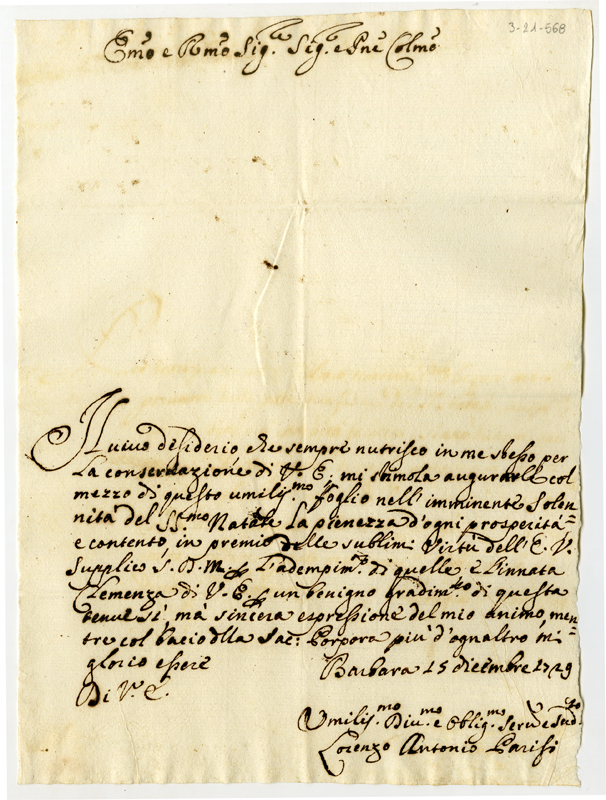 3-21-568
Emo e Rmo Sig.re Sig.re e Pne Colmo
Il uiuo desiderio che sempre nutrisco in me stesso per
La conseruazione di V. E. mi stimola augurarle col
mezzo di questo umilis.mo foglio nell'imminente Solen
nità del SS.mo Natale La pienezza d'ogni prosperità=
e contento, in premio delle sublimi Virtù dell'E. V.
Supplico S. D. M. L'adempim.to di quelle e L'innata
Clemenza di V. E. un benigno gradim.to di questa
tenue sì, mà sincera espressione del mio animo, men
tre col bacio della Sac: Porpora più d'ognaltro mi=
glorio essere
Barbara 15 dicembre 1729
Di V. E.
Umilis.mo Diu.mo e Oblig.mo Seru.e
Lorenzo Antonio Parisi